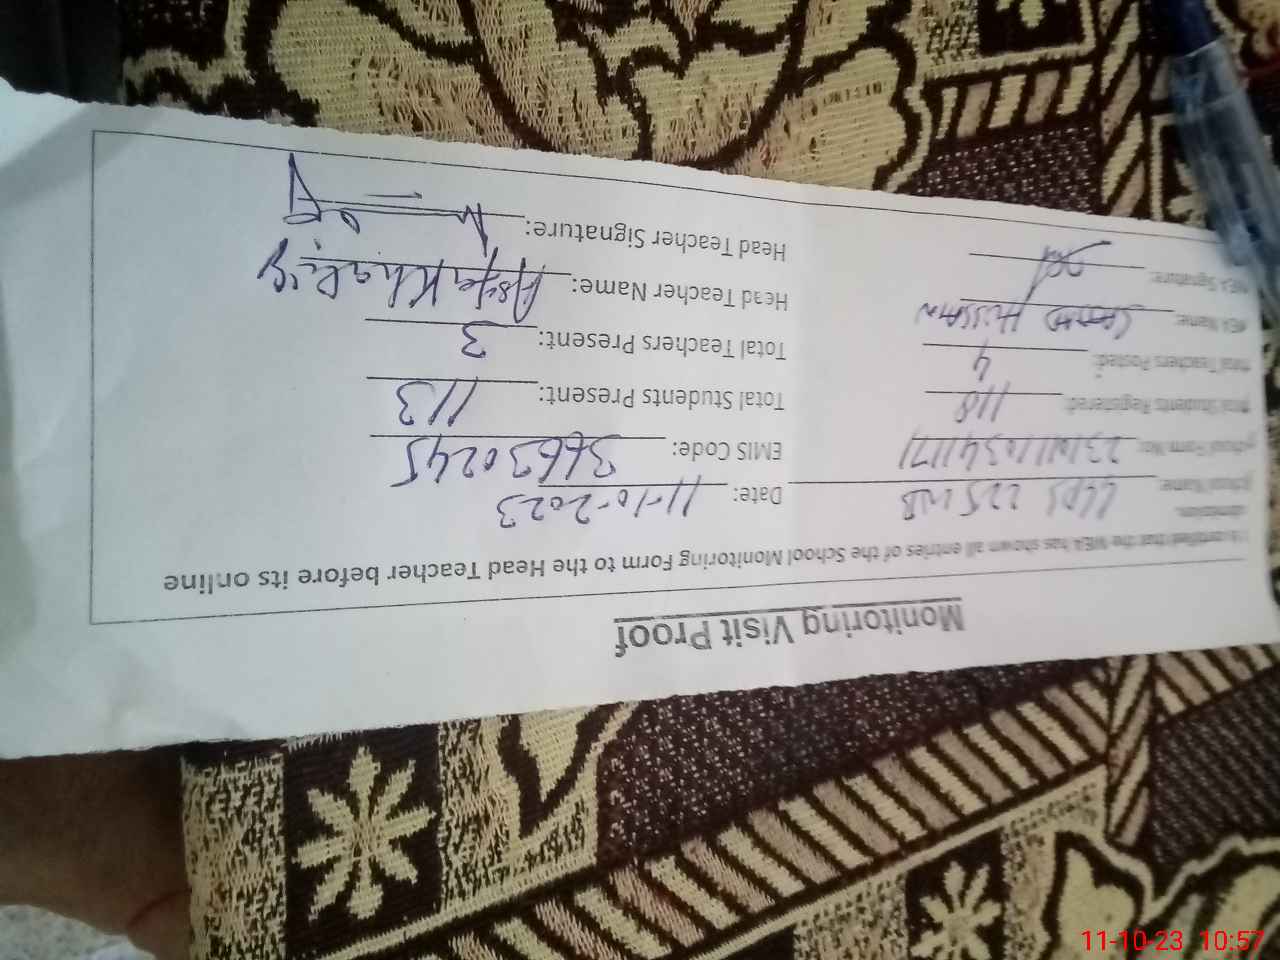 Monitoring Visit Proof
It is certified that the MEA has shown all entries of the School Monitoring Form to the Head Teacher before its online
submission.
School Name: GGPS 225 WB Date: 11-10-2023
School Form No: EMIS Code: 36630245
Total Students Registered: 118 Total Students Present: 113
Total Teachers Posted: 4 Total Teachers Present: 3
MEA Name: Hissan Head Teacher Name: Asfa Khaliq
MEA Signature: Head Teacher Signature:
11-10-23 10:57